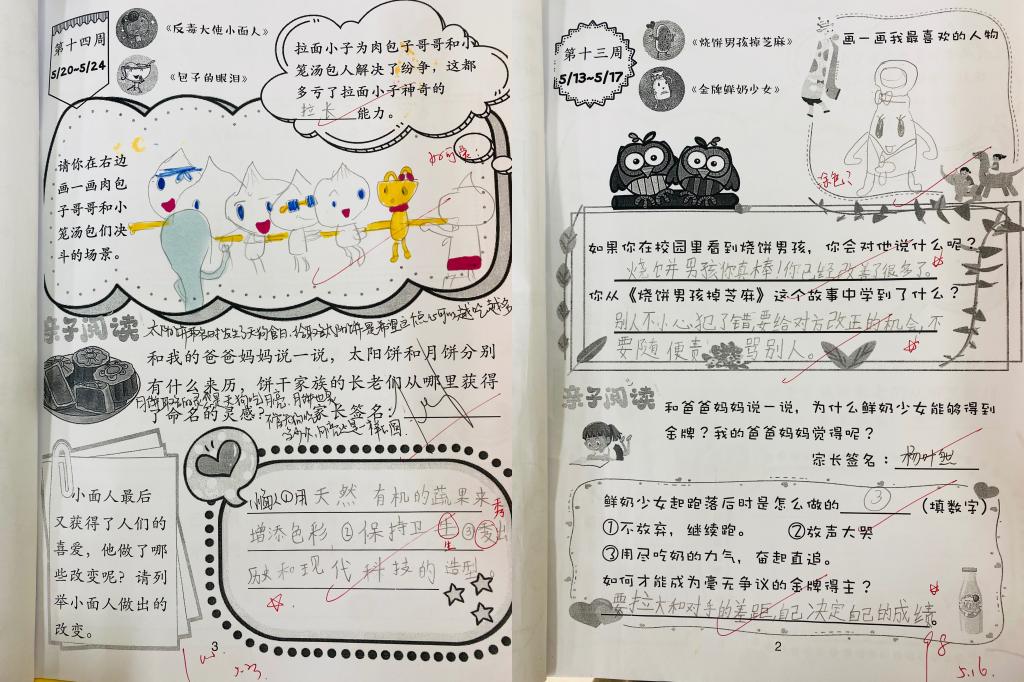 第十四周
5/20~5/24
《反毒大使小面人》
《包子的眼泪》
拉面小子为肉包子哥哥和小
笼汤包人解决了纷争，这都
多亏了拉面小子神奇的
拉长 能力。
请你在右边
画一画肉包
子哥哥和小
笼汤包们决
斗的场景。
亲子阅读
和我的爸爸妈妈说一说，太阳饼和月饼分别
有什么来历，饼干家族的长老们从哪里获得
了命名的灵感？
家长签名：
小面人最后
又获得了人们的
喜爱，他做了哪
些改变呢？请列
举小面人做出的
改变。
①用天然 有机的蔬果来
增添色彩 ②保持卫 生 ③秀出
历史和现代科技的造型。
3
5.23
第十三周
5/13~5/17
《烧饼男孩掉芝麻》
《金牌鲜奶少女》
画一画我最喜欢的人物
涂色？
如果你在校园里看到烧饼男孩，你会对他说什么呢？
烧饼男孩你真棒！你已经改善了很多了。
你从《烧饼男孩掉芝麻》这个故事中学到了什么？
别人不小心犯了错，要给对方改正的机会，不
要随便责骂别人。
亲子阅读
和爸爸妈妈说一说，为什么鲜奶少女能够得到
金牌？我的爸爸妈妈觉得呢？
家长签名：
鲜奶少女起跑落后时是怎么做的 ③ （填数字）
①不放弃，继续跑。 ②放声大哭
③用尽吃奶的力气，奋起直追。
如何才能成为毫无争议的金牌得主？
要拉大和对手的差距，自己决定自己的成绩。
2
98
5.16.